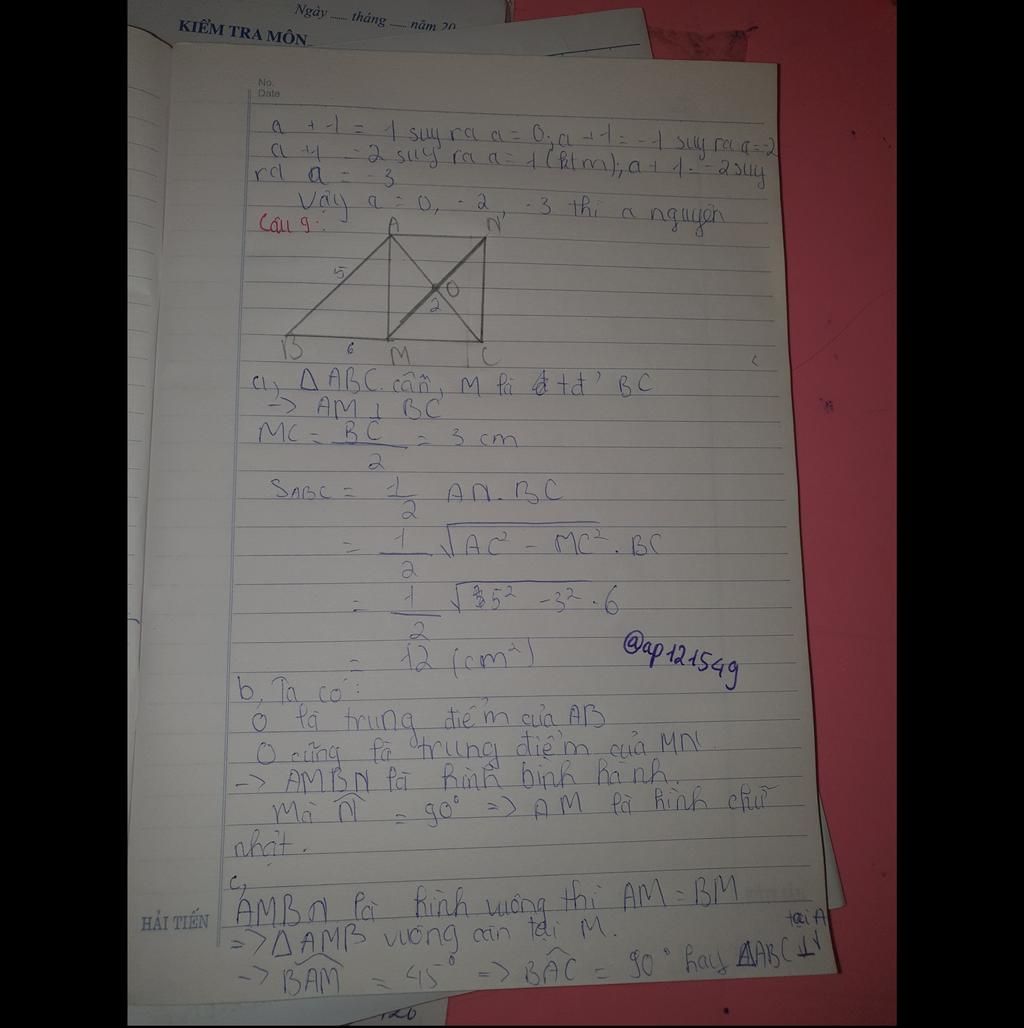 Ngày ...... tháng ..... năm 20
KIỂM TRA MÔN
No.
Date
a + 1 = 1 suy ra a = 0; a + 1 = -1 suy ra a = -2
a + 1 = 2 suy ra a = 1 (ktm); a + 1 = -2 suy
ra a = -3
Vậy a = 0, -2, -3 thì a nguyên
Câu 9:
A N
5
O
2
B 6 M C
a, Δ ABC cân, M là tđ BC
-> AM ⊥ BC
MC = BC/2 = 3 cm
SABC = 1/2 AN.BC
= 1/2 √AC² - MC² . BC
= 1/2 √5² - 3² . 6
= 12 (cm²)
@ap121549
b, Ta có:
O là trung điểm của AB
O cũng là trung điểm của MN
-> AMBN là hình bình hành.
Mà N̂ = 90° => AM là hình chữ
nhật.
c,
AMBN là hình vuông thì AM = BM
=> Δ AMB vuông cân tại M.
-> BAM = 45° => BAC = 90° hay ΔABC ⊥ tại A
HẢI TIẾN